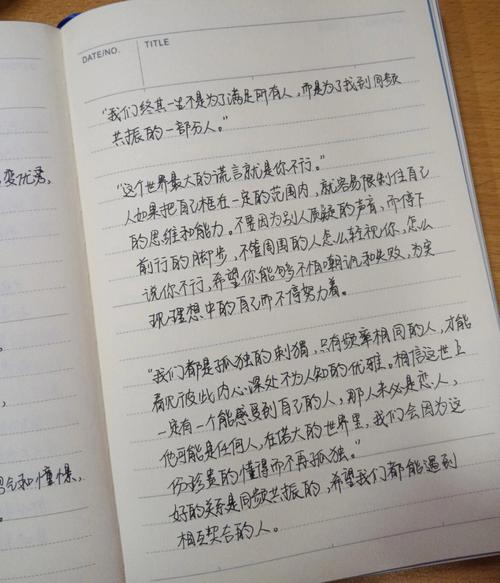 DATE/NO.
TITLE
"我们终其一生不是为了满足所有人,而是为了找到同频
共振的一部分人。"
"这个世界最大的谎言就是你不行。"
人如果把自己框在一定的范围内,就容易限制住自己
的思维和能力。不要因为别人质疑的声音,而停下
前行的脚步,不管周围的人怎么轻视你、怎么
说你不行,希望你能够不怕嘲讽和失败,为实
现理想中的自己而不停努力着。
"我们都是孤独的刺猬,只有频率相同的人,才能
看见彼此内心深处不为人知的优雅。相信这世上
一定有一个能感受到自己的人,那人未必是恋人,
他可能是任何人,在偌大的世界里,我们会因为这
份珍贵的懂得而不再孤独。"
好的关系是同频共振的,希望我们都能遇到
相互契合的人。
和懂得,